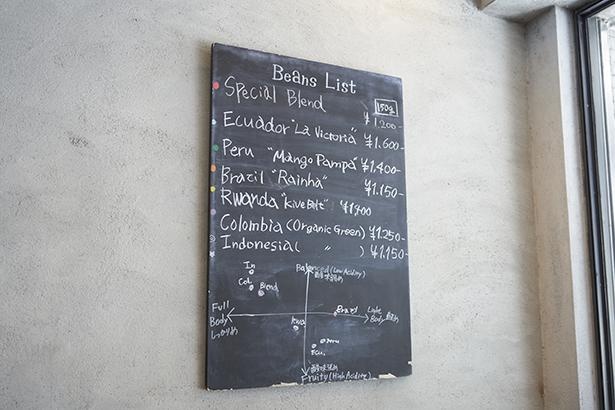 Beans List
Special Blend
150g
¥1.200-
Ecuador "La Victoria" ¥1.600-
Peru "Mango Pampa" ¥1.400-
Brazil "Rainha" ¥1.150-
Rwanda "kive Belt" ¥1.400
Colombia (Organic Green) ¥1.250-
Indonesia ( 〃 ) ¥1.150-
Balanced (Low Acidity)
In
Col
Blend
Full
Body
Brazil
Light
Body
Rwa
Peru
Ecu.
Fruity (High Acidity)